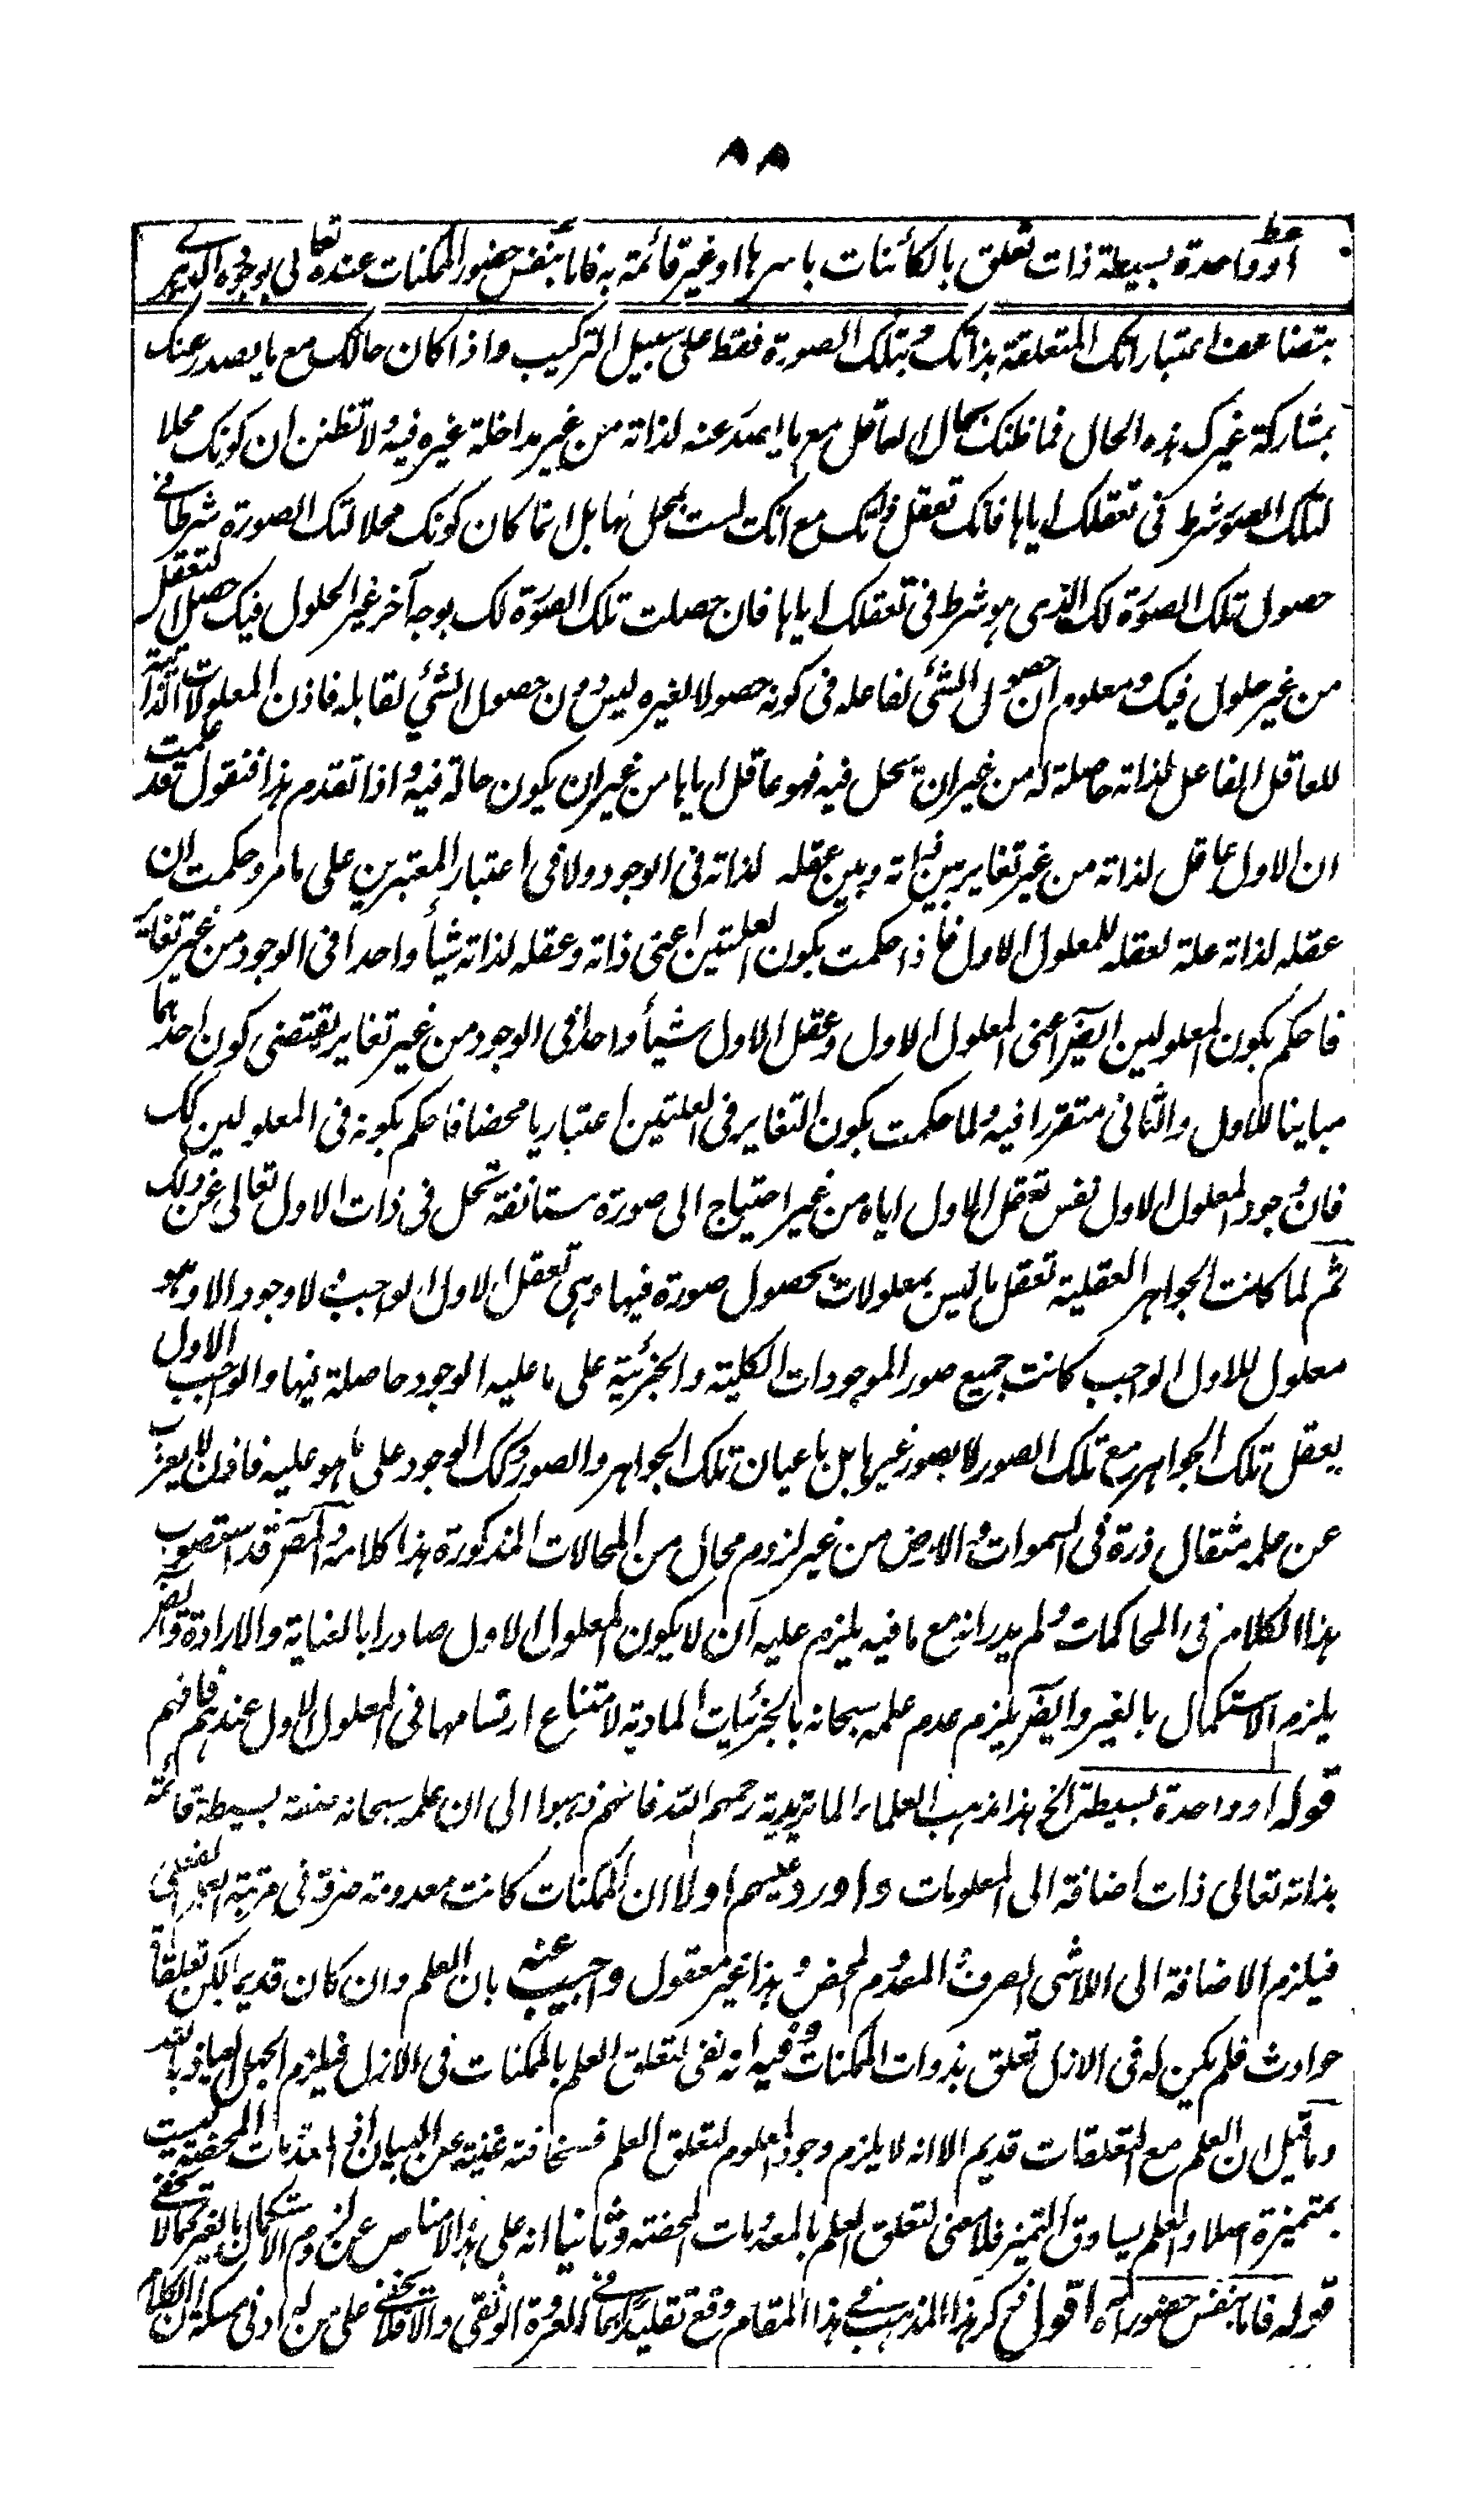 ٨٨
او واحدة بسيطة ذات تعلق بالكائنات باسرها او غير قائمة به فاما بنفس حضور الممكنات عنده تعالى بوجوده الدهري
بتضاعف اعتباراتك المتعلقة بذاتك وبتلك الصورة فقط على سبيل التركيب واذا كان حالك مع ما يصدر عنك
بمشاركة غيرك هذه الحال فما ظنك بحال العاقل مع ما يصدر عنه لذاته من غير مداخلة غيره فيه ولا تظنن ان كونك محلا
لتلك الصورة شرط فى تعقلك اياها فانك تعقل ذاتك مع انك لست بمحل لها بل انما كان كونك محلا لتلك الصورة شرطا فى
حصول تلك الصورة لك الذى هو شرط فى تعقلك اياها فان حصلت تلك الصورة لك بوجه آخر غير الحلول فيك حصل التعقل
من غير حلول فيك ومعلوم ان حصول الشئ لفاعله فى كونه حصولا لغيره ليس دون حصول الشئ لقابله فاذن المعلولات الذاتية
للعاقل الفاعل لذاته حاصلة له من غير ان تحل فيه فهو عاقل اياها من غير ان يكون حالة فيه واذا تقدم هذا فنقول قد علمت
ان الاول عاقل لذاته من غير تغاير بين ذاته وبين عقله لذاته فى الوجود ولا فى اعتبار المعتبرين على ما مر وحكمت ان
عقله لذاته علة لعقله للمعلول الاول فاذا حكمت بكون العلتين اعنى ذاته وعقله لذاته شيأ واحدا فى الوجود من غير تغاير
فاحكم بكون المعلولين ايضا اعنى المعلول الاول وعقل الاول شيأ واحدا فى الوجود من غير تغاير يقتضى كون احدهما
مباينا للاول والثانى متقررا فيه ولما حكمت بكون التغاير فى العلتين اعتباريا محضا فاحكم بكونه فى المعلولين كك
فان وجود المعلول الاول نفس تعقل الاول اياه من غير احتياج الى صورة مستانفة تحل فى ذات الاول تعالى عن ذلك
ثم لما كانت الجواهر العقلية تعقل ما ليس بمعلولات بحصول صورة فيها وهى تعقل الاول الواجب ولا وجود الا وهو
معلول للاول الواجب كانت جميع صور الموجودات الكلية والجزئية على ما عليه الوجود حاصلة فيها والواجب الاول
يعقل تلك الجواهر مع تلك الصور لا بصور غيرها بل باعيان تلك الجواهر والصور وكك الوجود على ما هو عليه فاذن لا يعزب
عن علمه مثقال ذرة فى السموات والارض من غير لزوم محال من المحالات المذكورة هذا كلامه والمصر قد استصوب
هذا الكلام فى المحاكمات ولم يدر انه مع ما فيه يلزم عليه ان لا يكون المعلول الاول صادرا بالعناية والارادة وايضا
يلزم الاستكمال بالغير وايضا يلزم عدم علمه سبحانه بالجزئيات المادية لامتناع ارتسامها فى المعلول الاول عندهم فافهم
قوله او واحدة بسيطة الخ هذا مذهب العلماء الماتريدية رحمهم الله فانهم ذهبوا الى ان علمه سبحانه صفة بسيطة قائمة
بذاته تعالى ذات اضافة الى المعلومات واورد عليهم اولا ان الممكنات كانت معدومة صرفة فى مرتبة العلم الفعلى
فيلزم الاضافة الى اللاشى الصرف والمعدوم المحض وهذا غير معقول واجيب عنه بان العلم وان كان قديما لكن تعلقاته
حوادث فلم يكن له فى الازل تعلق بذوات الممكنات وفيه انه نفى لتعلق العلم بالممكنات فى الازل فيلزم الجهل العياذ بالله
وما قيل ان العلم مع التعلقات قديم الا انه لا يلزم وجود المعلوم لتعلق العلم فسخافته غنية عن البيان اذ المعدومات المحضة ليست
بمتميزة اصلا والعلم يساوق التميز فلا معنى لتعلق العلم بالمعدومات المحضة وثانيا انه على هذا لا مناص عن لزوم الاستكمال بالغير كما لا يخفى
قوله فاما بنفس حضور الخ اقول ذكر هذا المذهب فى هذا المقام وقع تقليدا لما فى العروة الوثقى والا فلا يخفى على من له ادنى مسكة ان الكلام